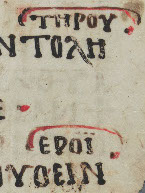 ⲧⲏⲣⲟⲩ
ⲛⲧⲟⲗⲏ
ⲉ
ⲉⲣⲟⲓ̈
ⲩⲟⲉⲓⲛ